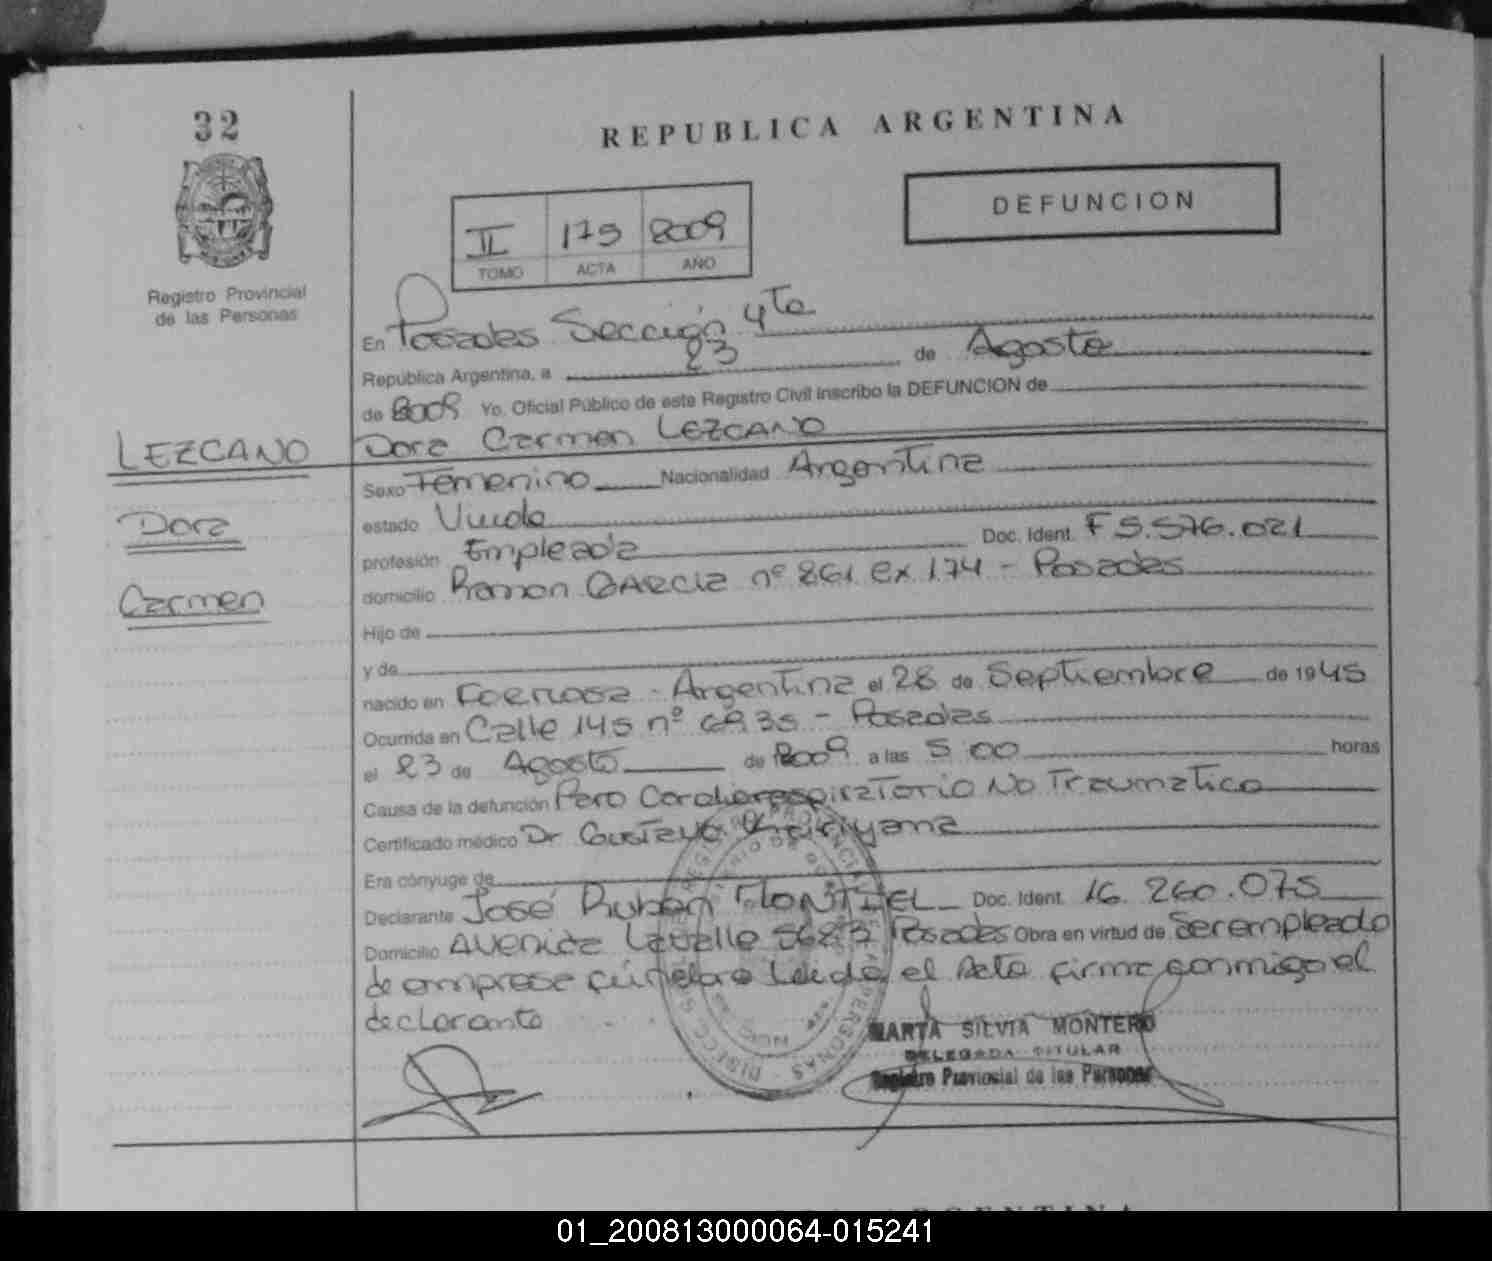 32
REPUBLICA ARGENTINA
DEFUNCION
II 175 2009
TOMO ACTA AÑO
Registro Provincial
de las Personas
En Posadas Sección 4ta
República Argentina, a 23 de Agosto
de 2009 Yo, Oficial Público de este Registro Civil inscribo la DEFUNCION de
LEZCANO
Dora
Carmen
Dora Carmen LEZCANO
Sexo Femenino Nacionalidad Argentina
estado Viuda
profesión Empleada Doc. Ident. F 5.576.021
domicilio Ramon GARCIA nº 861 ex 174 - Posadas
Hijo de
y de
nacido en Formosa - Argentina el 28 de Septiembre de 1945
Ocurrida en Calle 145 nº 6935 - Posadas
el 23 de Agosto de 2009 a las 5:00 horas
Causa de la defunción Paro Cardiorespiratorio No Traumatico
Certificado médico Dr. Gustavo
Era cónyuge de
Declarante José Ruben MONTIEL Doc. Ident. 16.260.075
Domicilio Avenida Lavalle 5683 Posadas Obra en virtud de Ser empleado
de empresa fúnebre Leida el Acta firma conmigo el
declarante
MARTA SILVIA MONTERO
DELEGADA TITULAR
Registro Provincial de las Personas
ARGENTINA
01_200813000064-015241